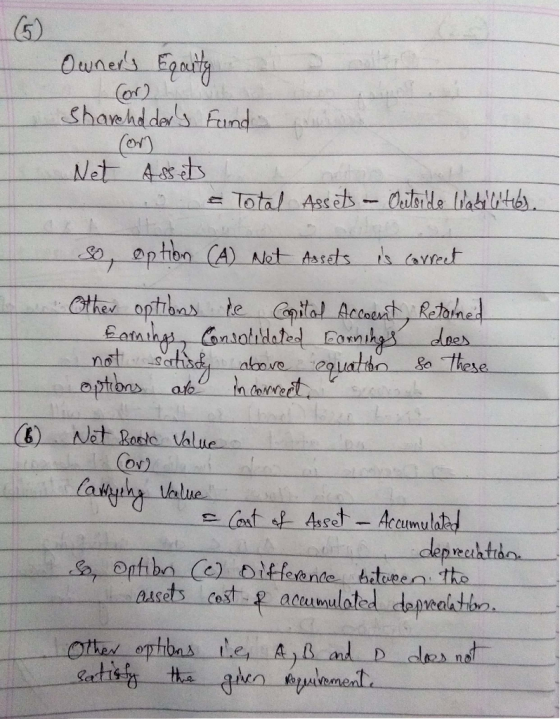 (5)
Owner's Equity
(or)
Shareholder's Fund
(or)
Net Assets
= Total Assets - Outside liabilities.
So, option (A) Net Assets is correct
Other options ie Capital Account, Retained
Earnings, Consolidated Earnings does
not satisfy above equation so these
options are incorrect.
(6) Net Book Value
(or)
Carrying Value
= Cost of Asset - Accumulated
depreciation.
So, option (c) Difference between the
assets cost & accumulated depreciation.
Other options i.e, A, B and D does not
satisfy the given requirement.